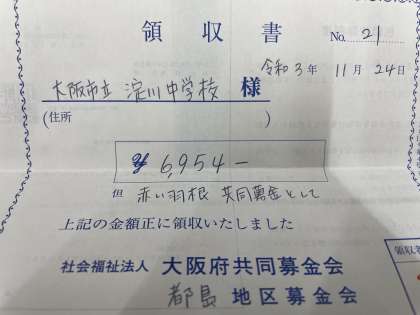 領収書 No. 21
令和3年 11月 24日
大阪市立 淀川中学校 様
(住所 )
¥6,954-
但 赤い羽根 共同募金として
上記の金額正に領収いたしました
社会福祉法人 大阪府共同募金会
都島 地区募金会
領収